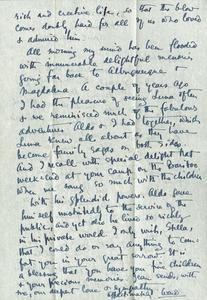 rich and creative life, so that the blow
comes doubly hard for all of us who loved
& admired him.
All morning my mind has been flooded
with innumerable delightful memories
going far back to Albuquerque &
Magdalena. A couple of years ago
I had the pleasure of seeing Luna often
& we reminisced much of the fabulous
adventures Aldo & I had together, which
Luna knew all about as they have
become family sagas on both sides.
And I recall with special delight that
week-end at your camp on the Baraboo
when we sang so much with the children
With his splendid powers, Aldo gave
himself unstintedly to the service of the
public, and yet all he lived so richly
in his private world. I only wish, Stella,
that I could do or say anything to com-
fort you in your great sorrow. It is
a blessing that you have your children
& your precious memories. Your send, with
me, our deepest love & sympathy.
Ward